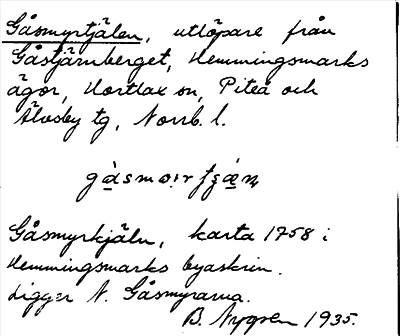 Gåsmyrtjälen, utlöpare från
Gåstjärnberget, Hemmingsmarks
ägor, Hortlax sn, Piteå och
Älvsby tg, Norrb. l.
Gåsmyrkjäln, karta 1758 i
Hemmingsmarks byaskrin.
Ligger N. Gåsmyrarna.
B. Nygren 1935.